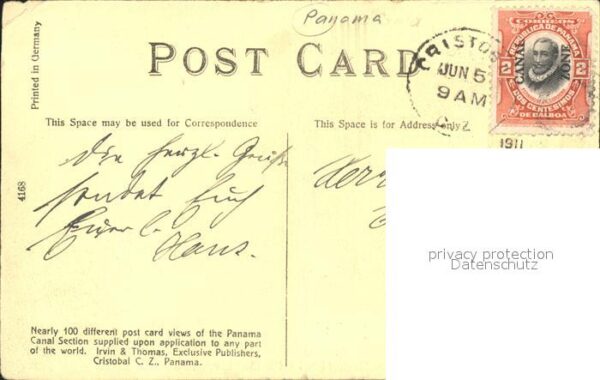 Panama
POST CARD
Printed in Germany
CRISTO
JUN 5
9 AM
C Z
1911
CORREOS
REPUBLICA DE PANAMA
CANAL ZONE
2 2
DOS CENTESIMOS
DE BALBOA
This Space may be used for Correspondence
This Space is for Address only
Die herzl. Grüße
sendet Euch
Euer l.
Hans.
Herr
4168
privacy protection
Datenschutz
Nearly 100 different post card views of the Panama
Canal Section supplied upon application to any part
of the world. Irvin & Thomas, Exclusive Publishers,
Cristobal C. Z., Panama.